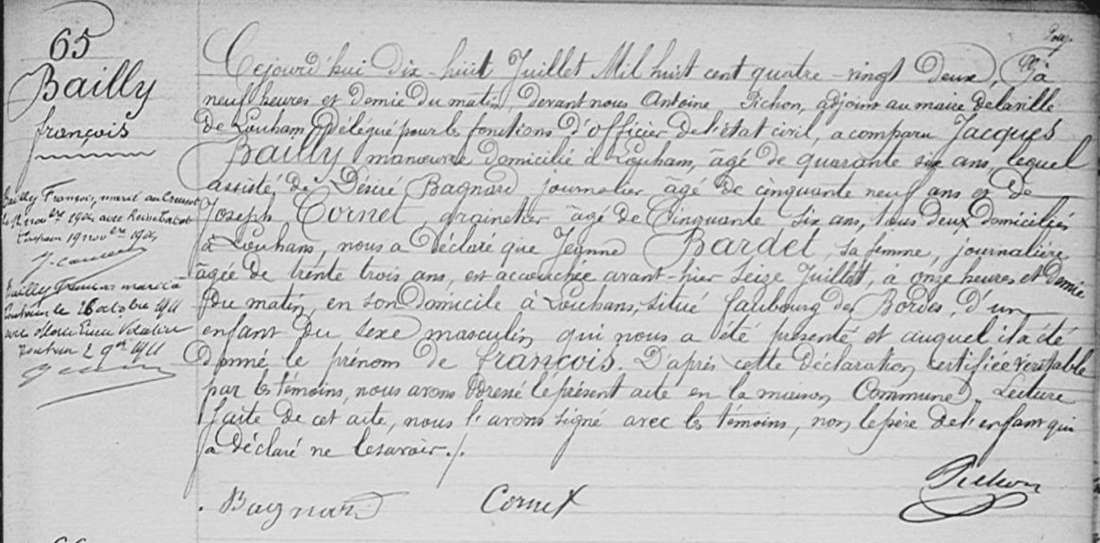 65
Bailly
françois
Bailly François, marié au Creusot
le 12 novbre 1904 avec
Louhans 19 novbre 1904
Bailly François marié à
le 26 octobre 1911
avec Marie
1911
Cejourd'hui dix-huit Juillet Mil huit cent quatre-vingt deux, à
neuf heures et Demie du matin, Devant nous Antoine Pichon, adjoint au maire de la ville
de Louhans, Délégué pour les fonctions d'officier de l'état civil, a comparu Jacques
Bailly manœuvre domicilié à Louhans, âgé de quarante six ans, lequel
assisté de Désiré Bagnard journalier âgé de cinquante neuf ans et de
Joseph Cornet, grainetier âgé de Cinquante six ans, tous deux domiciliés
à Louhans, nous a Déclaré que Jeanne Bardet, sa femme, journalière
âgée de trente trois ans, est accouchée avant-hier seize Juillet, à onze heures et Demie
du matin, en son Domicile à Louhans, situé faubourg des Bordes, d'un
enfant du sexe masculin qui nous a été présenté et auquel il a été
Donné le prénom de françois. D'après cette déclaration certifiée véritable
par les témoins, nous avons dressé le présent acte en la maison Commune. Lecture
faite de cet acte, nous l'avons signé avec les témoins, non le père de l'enfant qui
a déclaré ne le savoir./.
Bagnard Cornet Pichon